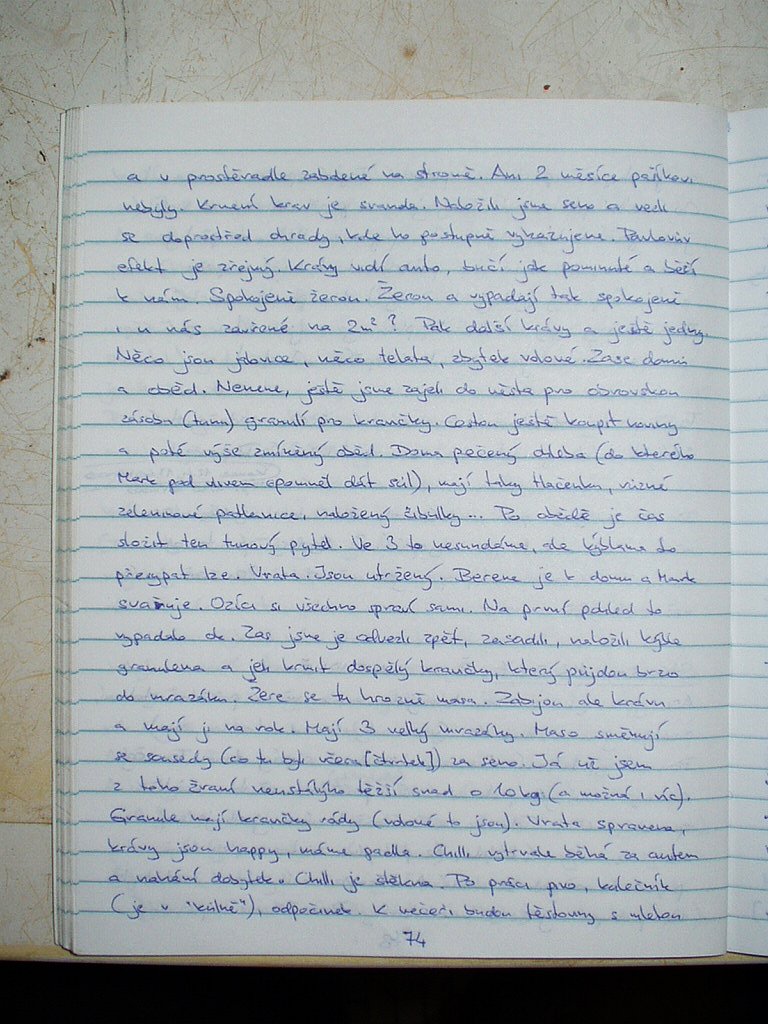 a v prostěradle zabdené na stromě. Ani 2 měsíce
nebyly. Krmení krav je sranda. Naložili jsme seno a vezli
se doprostřed ohrady, kde ho postupně vyhazujeme. Pavlovův
efekt je zřejmý. Krávy vidí auto, bučí jak pominuté a běží
k nám. Spokojeně žerou. Žerou a vypadají tak spokojeně
i u nás zavřené na 2m²? Pak další krávy a ještě jedny.
Něco jsou jalovice, něco telata, zbytek vdové. Zase domů
a oběd. Nenene, ještě jsme zajeli do města pro obrovskou
zásobu (tunu) granulí pro kravičky. Cestou ještě koupit noviny
a poté výše zmíněný oběd. Doma pečený chleba (do kterého
Mark pod vlivem zapomněl dát sůl), mají taky tlačenku, různé
zeleninové patlanice, naložený cibulky... Po obědě je čas
složit ten tunový pytel. Ve 3 to nesundáme, ale kýblama to
přesypat lze. Vrata. Jsou utržený. Bereme je k domu a Mark
svařuje. Ozíci si všechno spraví sami. Na první pohled to
vypadalo ok. Zas jsme je odvezli zpět, zasadili, naložili kýble
granulema a jeli krmit dospělý kravičky, který půjdou brzo
do mrazáku. Žere se tu hrozně masa. Zabijou ale krávu
a mají ji na rok. Mají 3 velký mrazáky. Maso směňují
se sousedy (co tu byli včera [čtvrtek]) za seno. Já už jsem
z toho žraní neustálýho těžší snad o 10 kg (a možná i víc).
Granule mají kravičky rády (vdové to jsou). Vrata spravena,
krávy jsou happy, máme padla. Chilli vytrvale běhá za autem
a nahání dobytek. Chilli je štěkna. Po práci pivo, kulečník
(je v "kůlně"), odpočinek. K večeři budou těstoviny s mletou
74